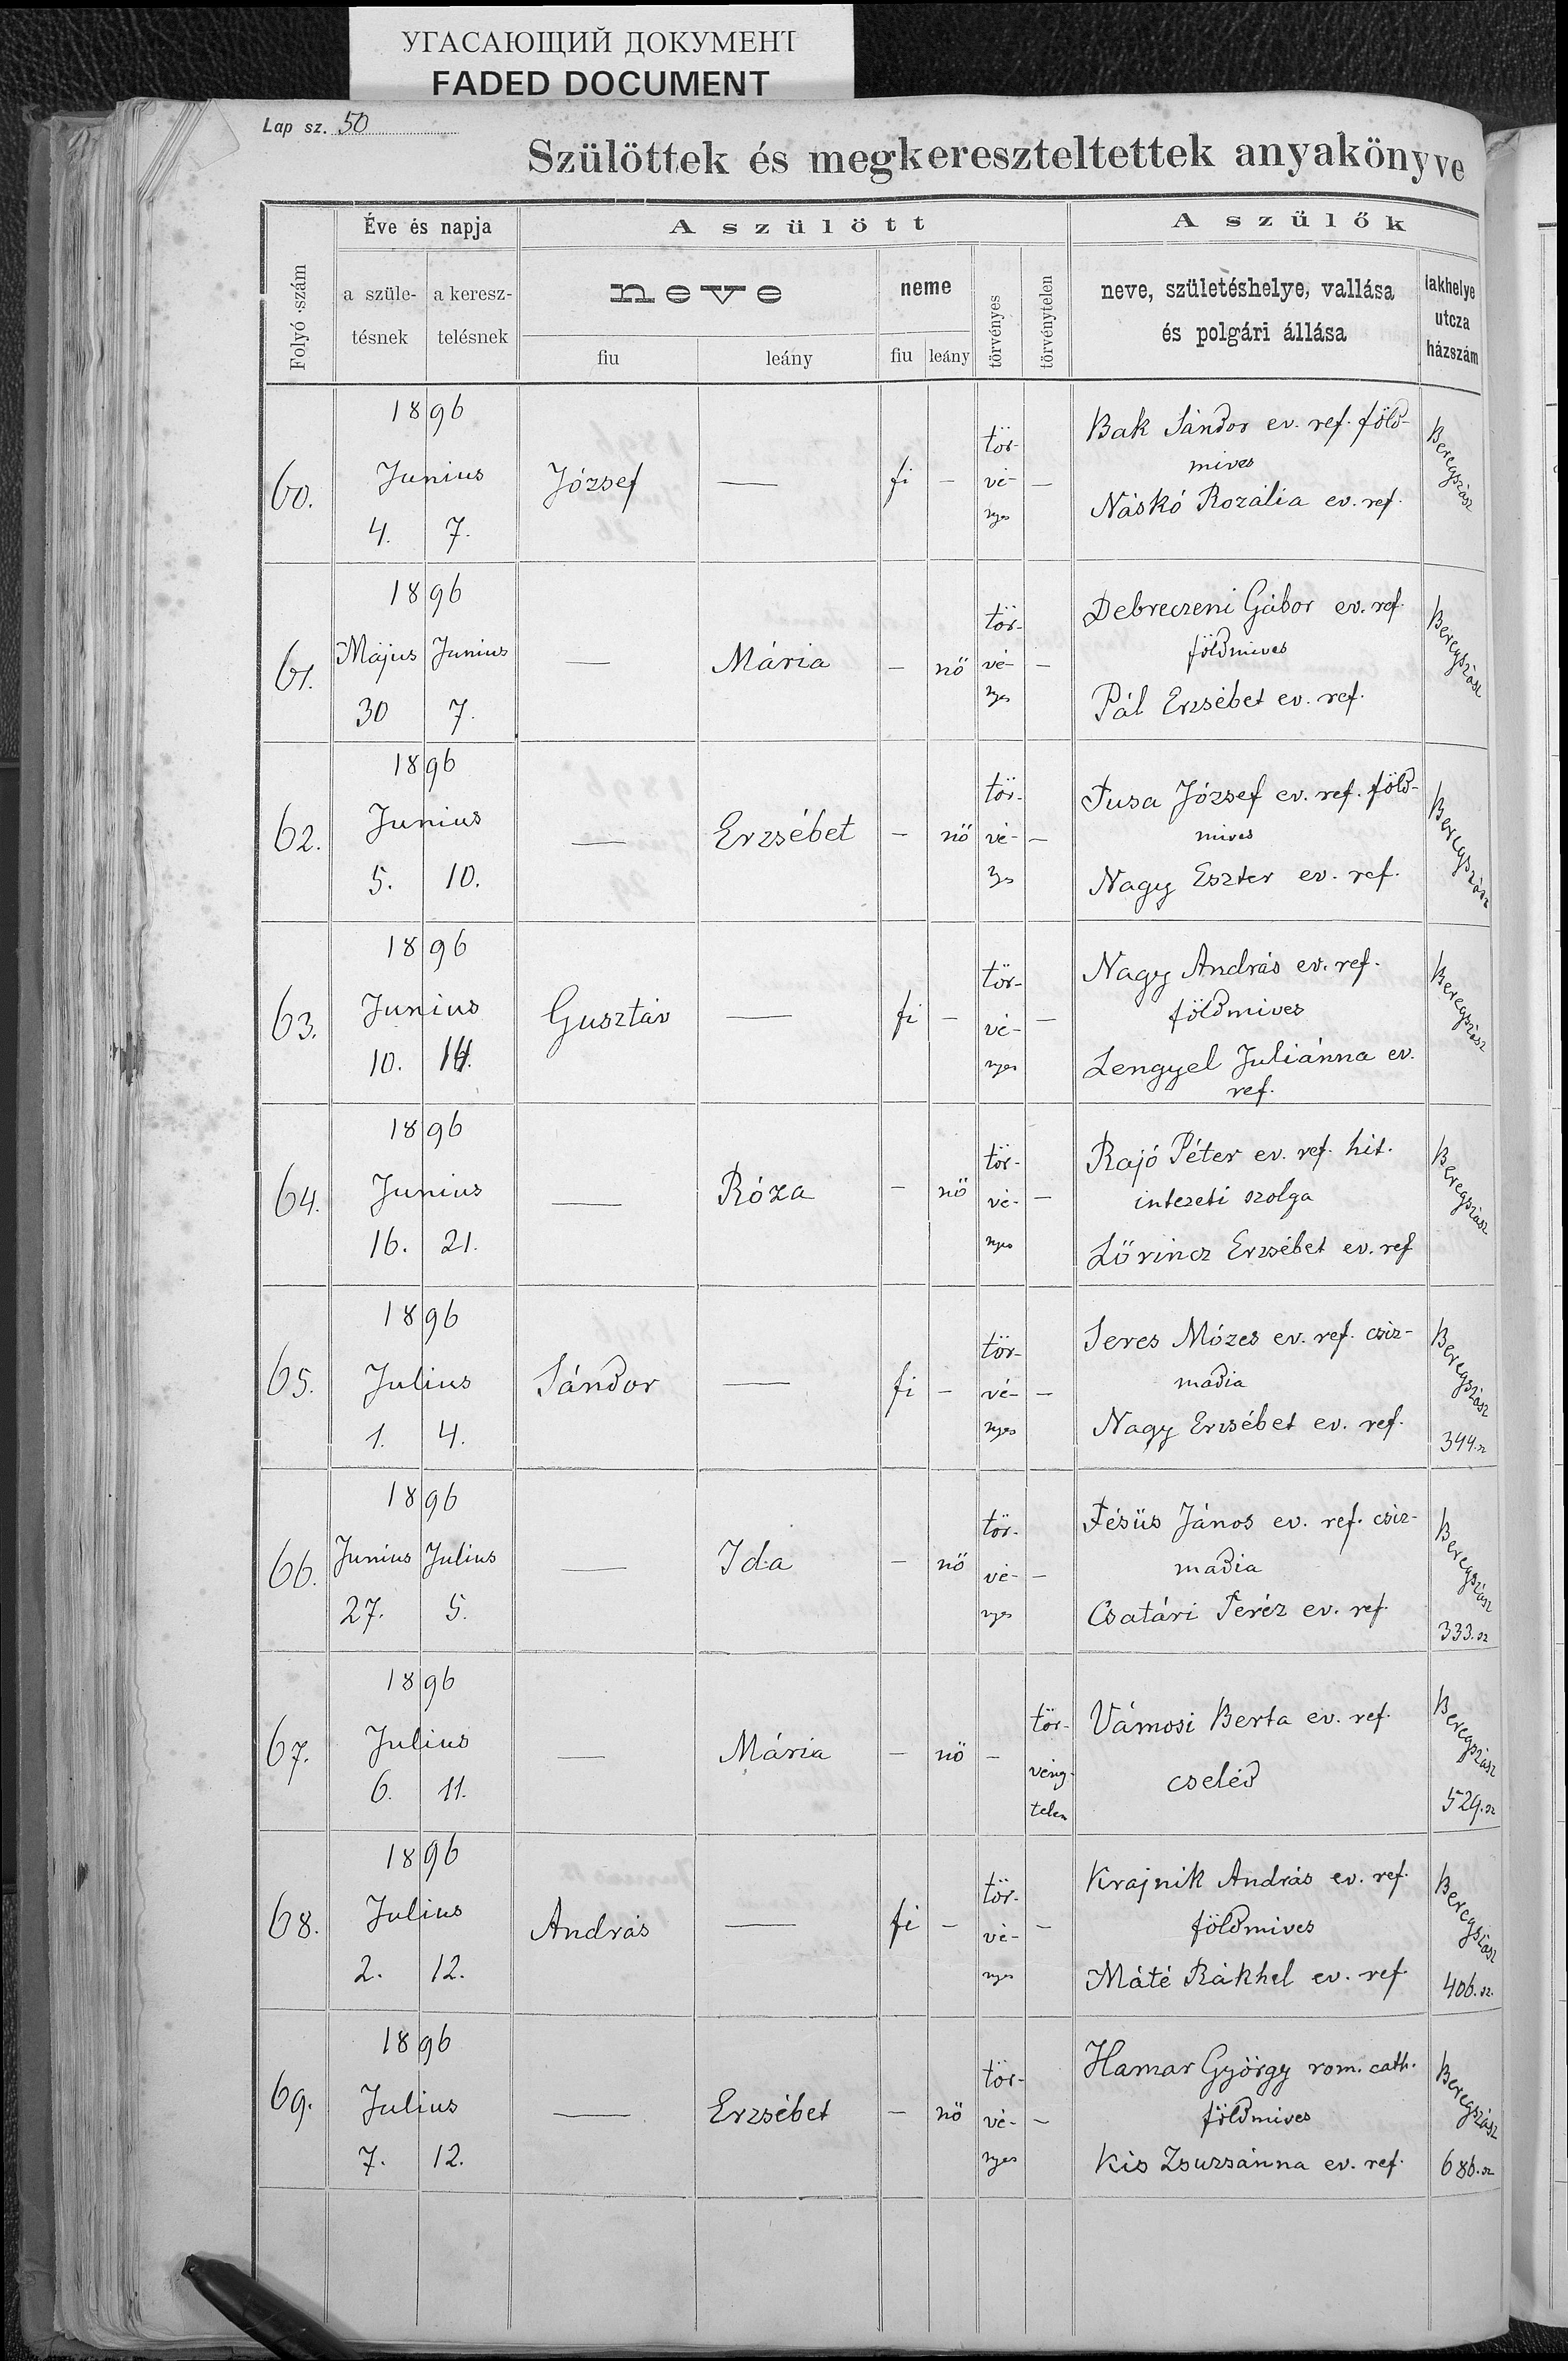 УГАСАЮЩИЙ ДОКУМЕНТ
FADED DOCUMENT
Lap sz. 50
Szülöttek és megkereszteltettek anyakönyve
Folyó szám
Éve és napja
a szüle-
tésnek
a keresz-
telésnek
A szülött
neve
fiu
leány
neme
fiu
leány
törvényes
törvénytelen
A szülők
neve, születéshelye, vallása
és polgári állása
lakhelye
utcza
házszám
60.
1896
Junius
4. 7.
József — fi —
tör-
vé-
nyes
—
Bak Sándor ev. ref. föld-
mives
Náskó Rozália ev. ref.
Beregszász
61.
1896
Május Junius
30 7.
— Mária — nö
tör-
vé-
nyes
—
Debreczeni Gábor ev. ref.
földmives
Pál Erzsébet ev. ref.
Beregszász
62.
1896
Junius
5. 10.
— Erzsébet — nö
tör-
vé-
—
Tusa József ev. ref. föld-
mives
Nagy Eszter ev. ref.
Beregszász
63.
1896
Junius
10. 14.
Gusztáv — fi —
tör-
vé-
nyes
—
Nagy András ev. ref.
földmives
Lengyel Juliánna ev.
ref.
Beregszász
64.
1896
Junius
16. 21.
— Róza — nö
tör-
vé-
nyes
—
Rajó Péter ev. ref. hit.
intezeti szolga
Lörincz Erzsébet ev. ref
Beregszász
65.
1896
Julius
1. 4.
Sándor — fi —
tör-
vé-
nyes
—
Seres Mózes ev. ref. csiz-
madia
Nagy Erzsébet ev. ref.
Beregszász
344. sz
66.
1896
Junius Julius
27. 5.
— Ida — nö
tör-
vé-
nyes
—
Fésüs János ev. ref. csiz-
madia
Csatári Teréz ev. ref.
Beregszász
333. sz
67.
1896
Julius
6. 11.
— Mária — nö —
tör-
vény-
telen
Vámosi Berta ev. ref.
cseléd
Beregszász
529. sz
68.
1896
Julius
2. 12.
András — fi —
tör-
vé-
nyes
—
Krajnik András ev. ref.
földmives
Máté Rákhel ev. ref.
Beregszász
406. sz.
69.
1896
Julius
7. 12.
— Erzsébet — nö
tör-
vé-
nyes
—
Hamar György rom. cath.
földmives
Kis Zsuzsánna ev. ref.
Beregszász
686. sz